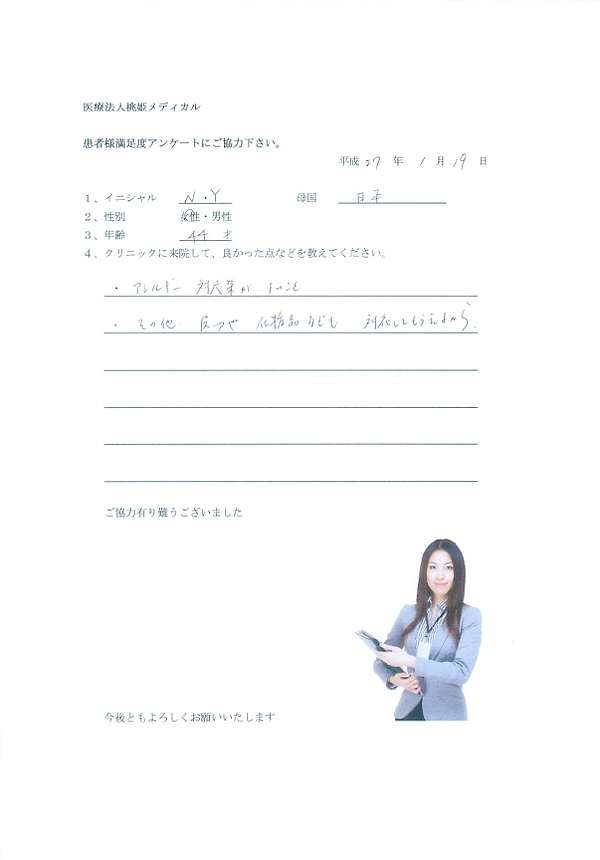 医療法人桃姫メディカル
患者様満足度アンケートにご協力下さい。
平成 27 年 1 月 19 日
1、イニシャル N・Y 母国 日本
2、性別 女性・男性
3、年齢 44 才
4、クリニックに来院して、良かった点などを教えてください。
・アレルギー 対応策が
・その他 化粧品なども 対応してもらえるから。
ご協力有り難うございました
今後ともよろしくお願いいたします